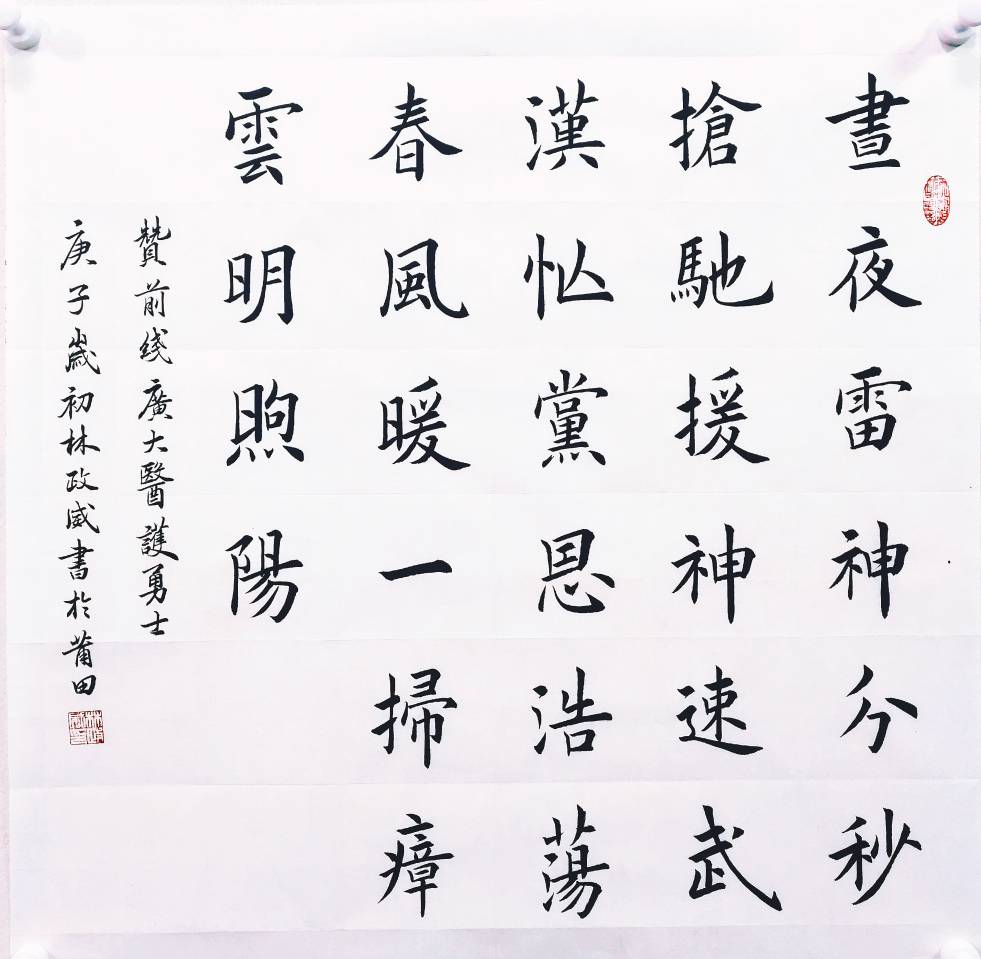 晝夜雷神分秒
搶馳援神速武
漢忙黨恩浩蕩
春風暖一掃瘴
雲明煦陽
贊前线廣大醫護勇士
庚子歲初林政威書於莆田